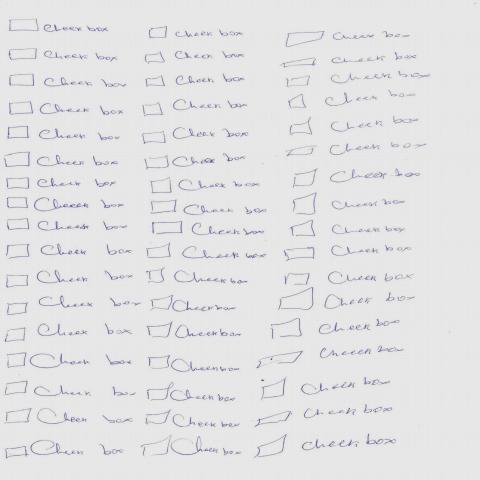 Check box Check box Check box
Check box Check box Check box
Check box Check box Check box
Check box Check box Check box
Check box Check box Check box
Check box Check box Check box
Check box Check box Check box
Check box Check box Check box
Check box Check box Check box
Check box Check box Check box
Check box Check box Check box
Check box Checkbox Check box
Check box Checkbox Check box
Check box Checkbox Check box
Check box Checkbox Check box
Check box Check box Check box
Check box Check box Check box